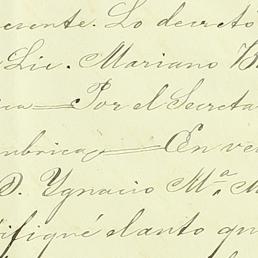 esente. Lo decretó
Lic. Mariano
ica — Por el Secreta
mbrica — En ve
D. Ygnacio Mª. M
ifiqué el auto qu